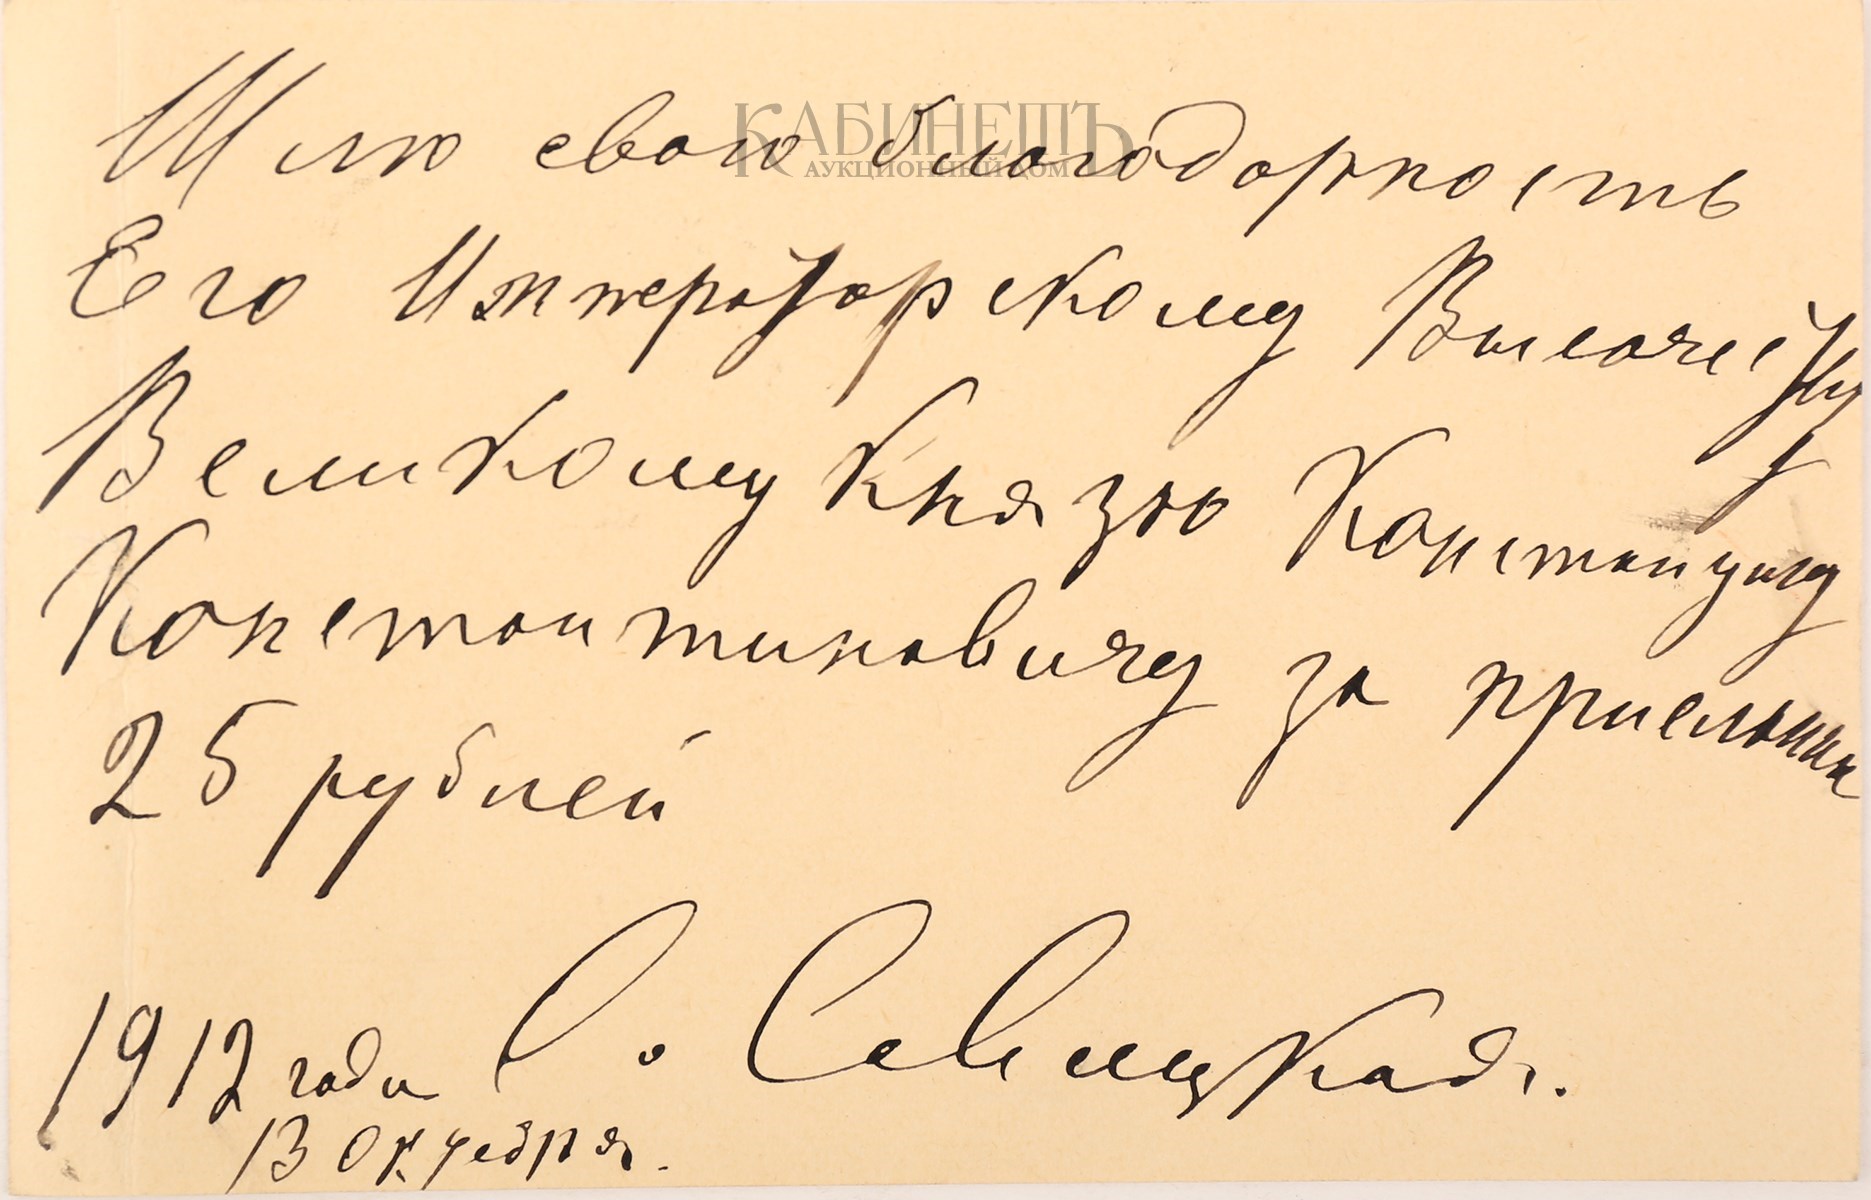 КАБИНЕТЪ
АУКЦИОННЫЙ ДОМ
Шлю свою благодарность
Его Императорскому Высочеству
Великому Князю Константину
Константиновичу за присланные
25 рублей
1912 года С. Савицкая.
13 октября.